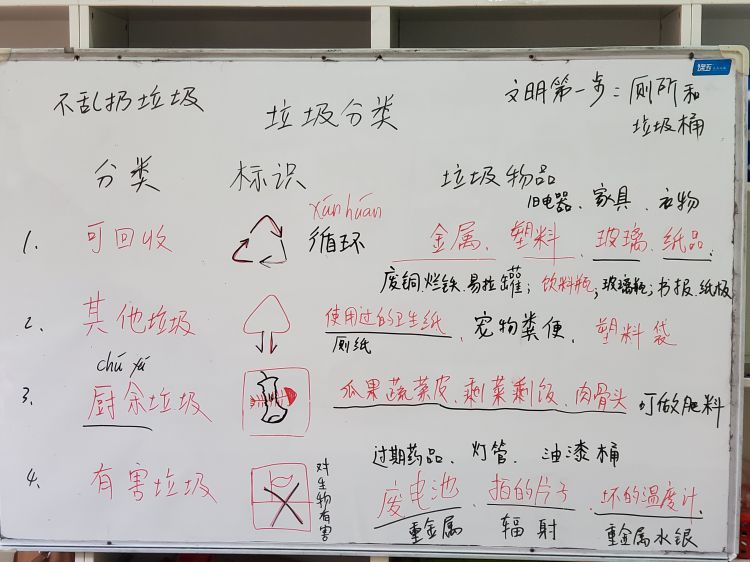 不乱扔垃圾
垃圾分类
文明第一步：厕所和
垃圾桶
分类 标识 垃圾物品
旧电器、家具、衣物
xúnhuán
1. 可回收 循环 金属、塑料、玻璃、纸品.
废铜.烂铁.易拉罐；饮料瓶；玻璃瓶；书报.纸板
2. 其他垃圾 使用过的卫生纸、宠物粪便、塑料袋
厕纸
chú yú
3. 厨余垃圾 瓜果蔬菜皮、剩菜剩饭、肉骨头 可做肥料
过期药品、灯管、油漆桶
4. 有害垃圾 对生物有害 废电池、拍的片子、坏的温度计.
重金属 辐射 重金属水银